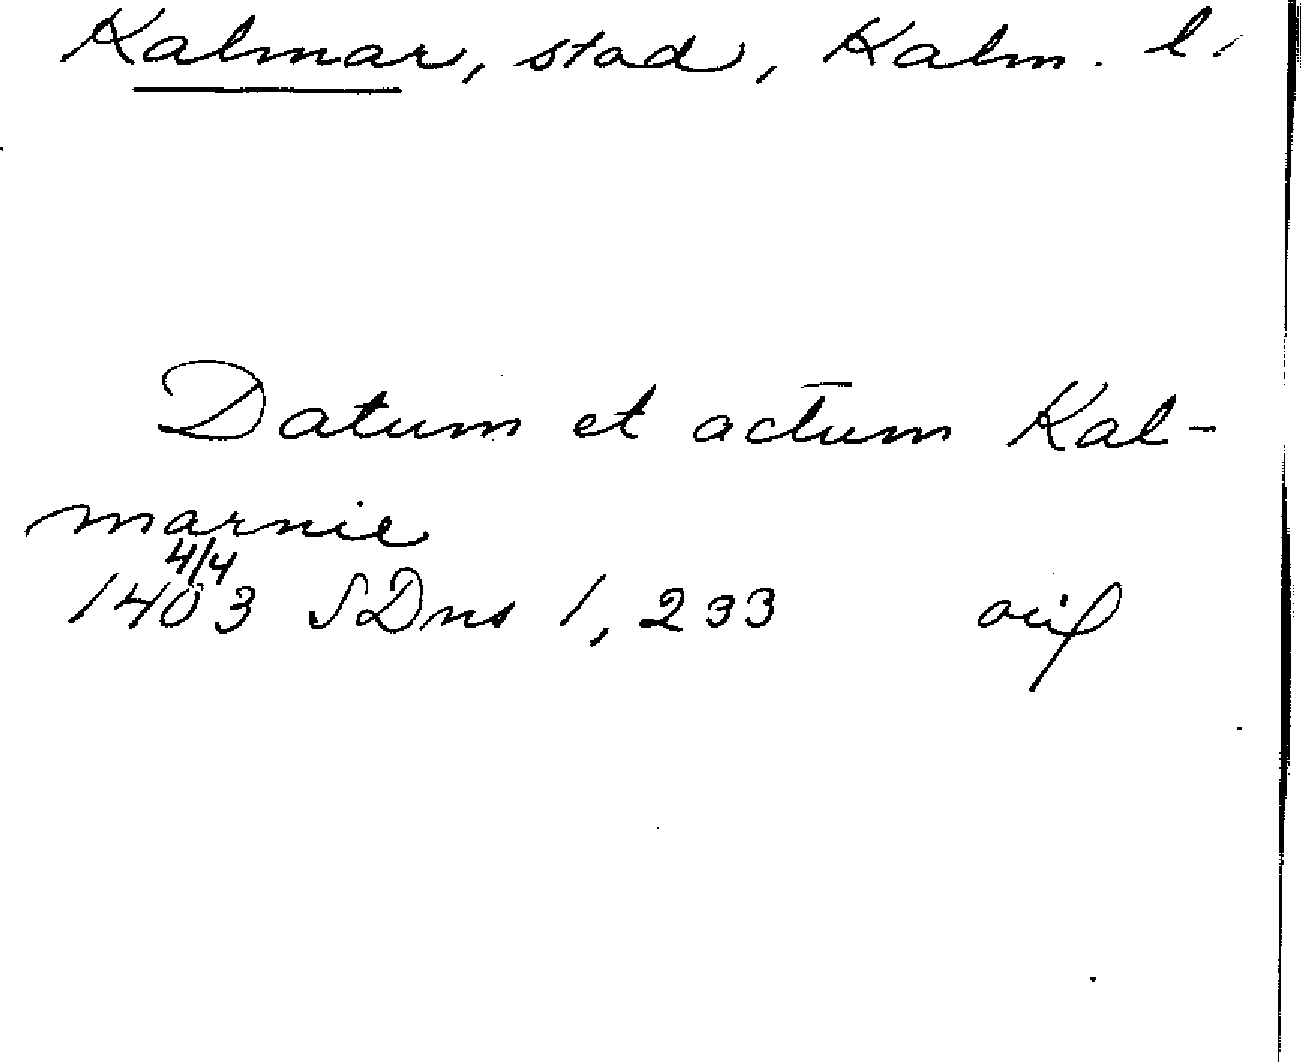 Kalmar, stad, Kalm. l.
Datum et actum Kal-
marnie
4/4
1403 SDns 1, 233